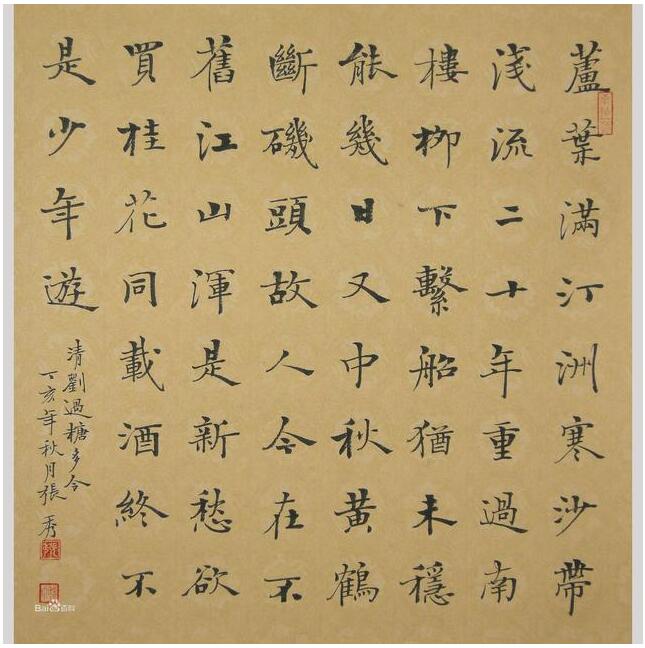 蘆葉滿汀洲寒沙帶
淺流二十年重過南
樓柳下繫船猶未穩
能幾日又中秋黃鶴
斷磯頭故人今在不
舊江山渾是新愁欲
買桂花同載酒終不
是少年遊
清劉過糖多令
丁亥年秋月張秀
Bai百科